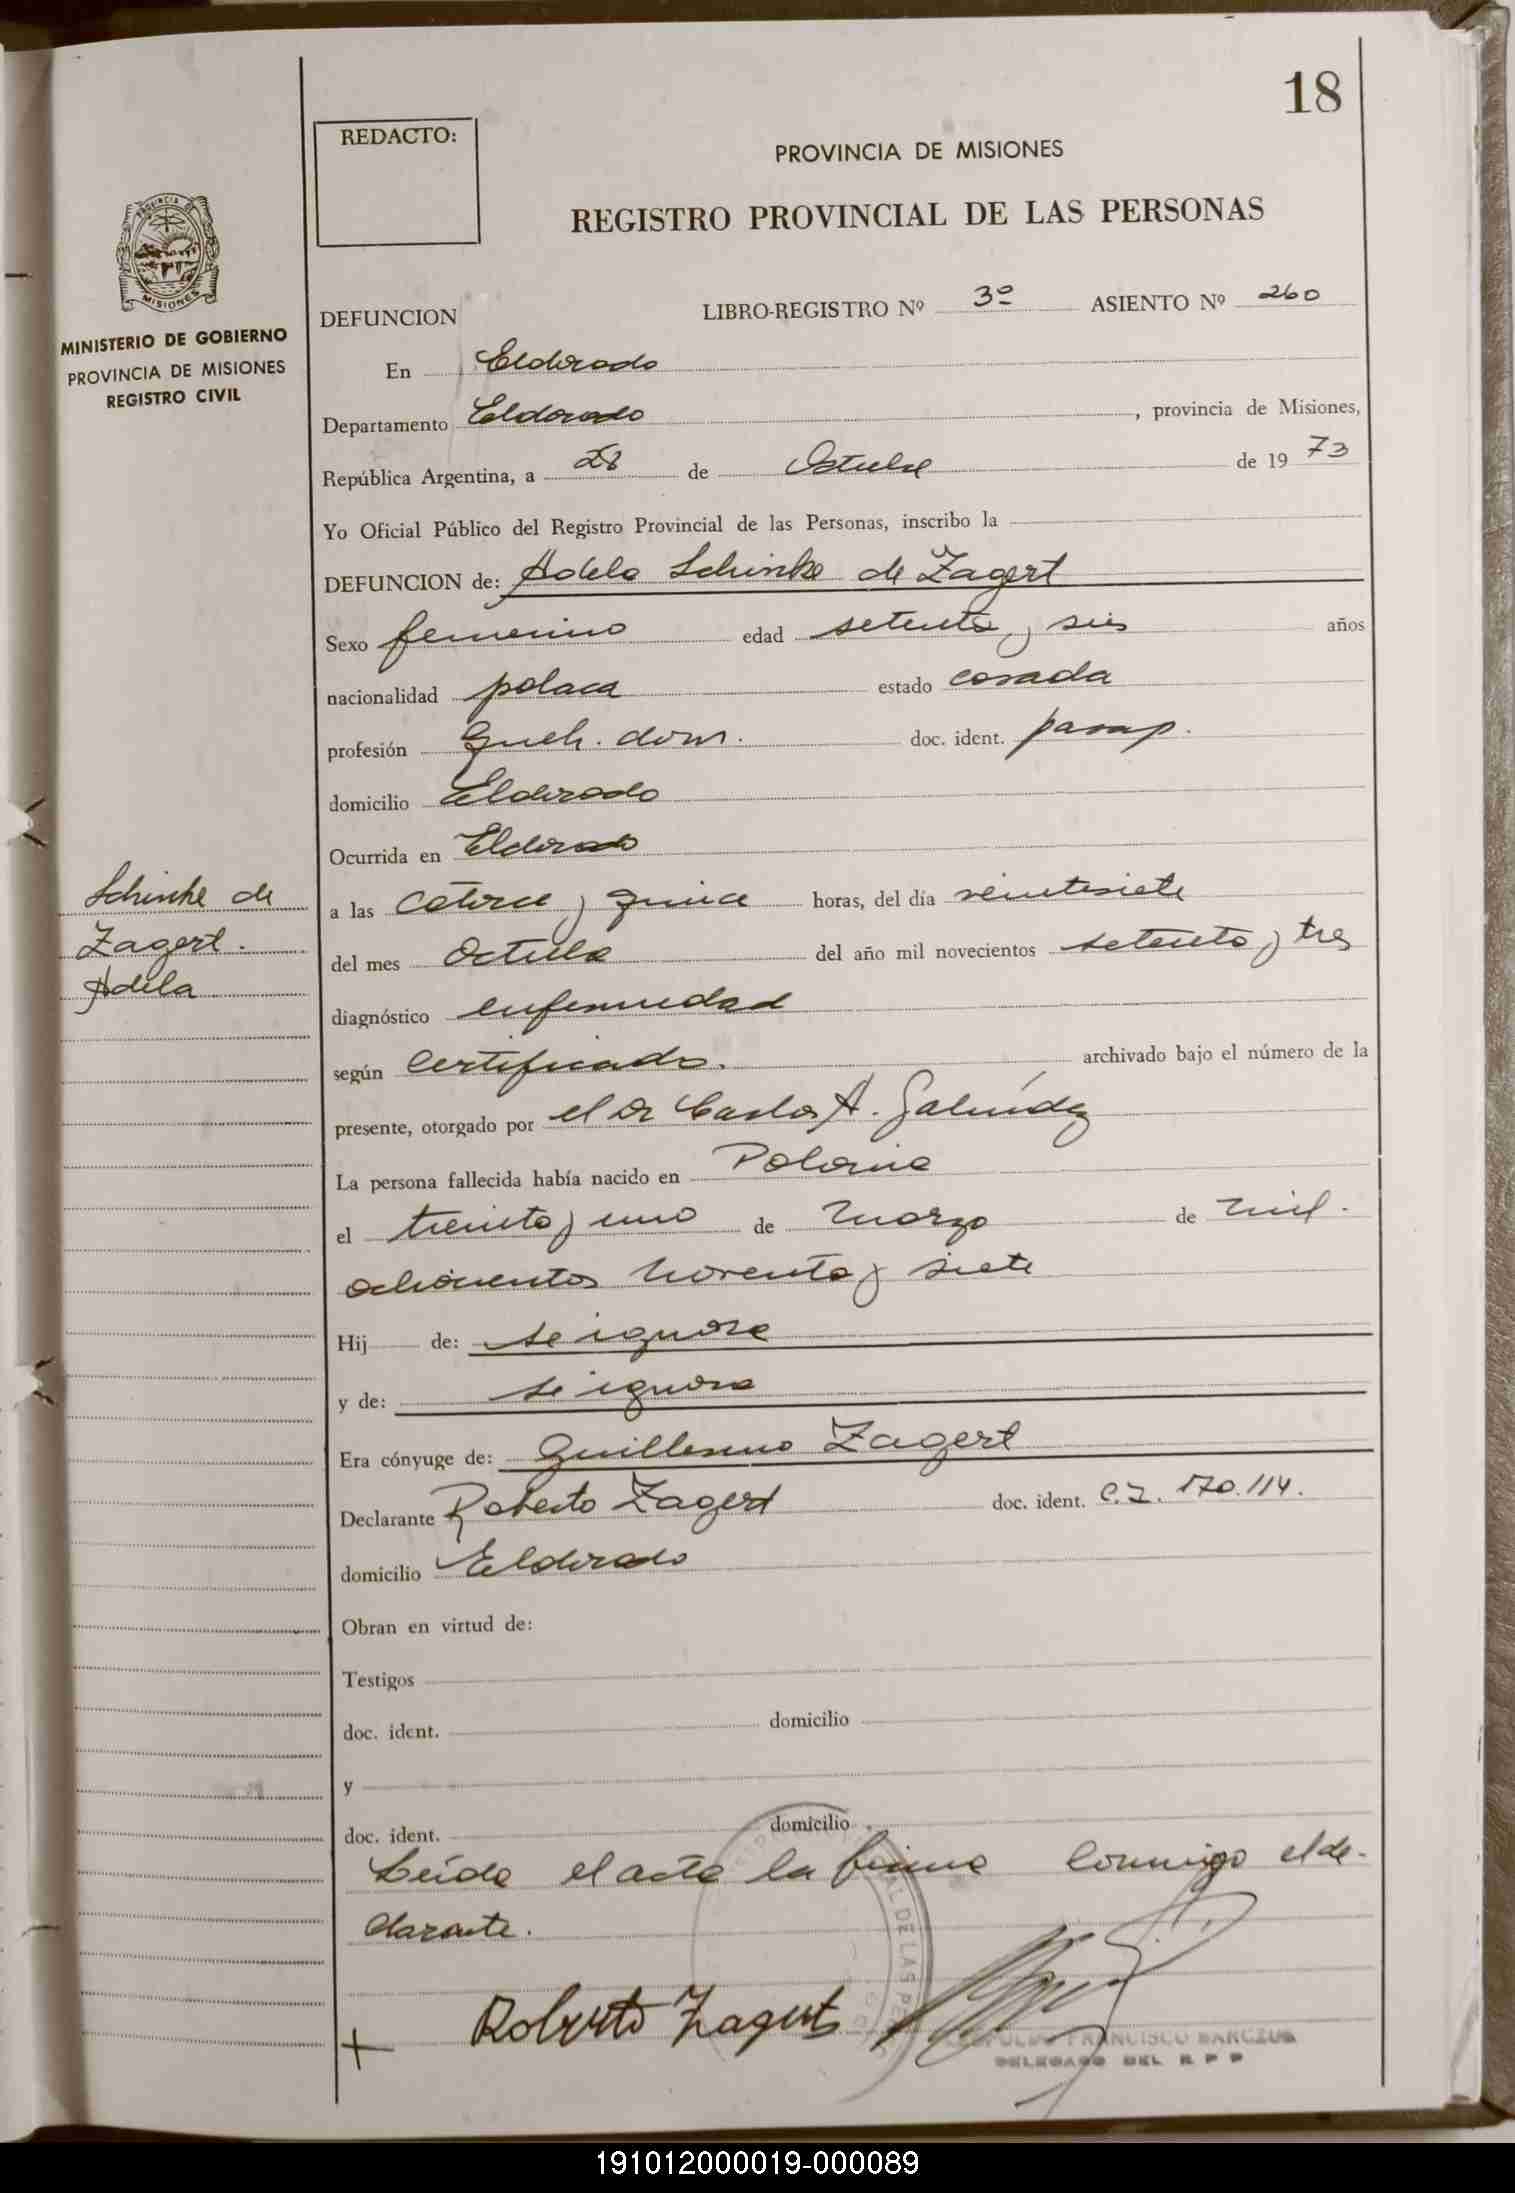 18
REDACTO:
PROVINCIA DE MISIONES
REGISTRO PROVINCIAL DE LAS PERSONAS
MISIONES
MINISTERIO DE GOBIERNO
PROVINCIA DE MISIONES
REGISTRO CIVIL
DEFUNCION LIBRO-REGISTRO Nº 3º ASIENTO Nº 260
En Eldorado
Departamento Eldorado, provincia de Misiones,
República Argentina, a 28 de Octubre de 1973
Yo Oficial Público del Registro Provincial de las Personas, inscribo la
DEFUNCION de: Adela Schinke de Zagert
Sexo femenino edad setenta y seis años
nacionalidad polaca estado casada
profesión Queh. dom. doc. ident. pasap.
domicilio Eldorado
Ocurrida en Eldorado
Schinke de
Zagert.
Adela
a las catorce y quince horas, del día veintesiete
del mes Octubre del año mil novecientos setenta y tres
diagnóstico enfermedad
según certificado. archivado bajo el número de la
presente, otorgado por el Dr Carlos A. Galíndez
La persona fallecida había nacido en Polonia
el treinta y uno de Marzo de mil
ochocientos noventa y siete
Hij de: se ignora
y de: se ignora
Era cónyuge de: Guillermo Zagert
Declarante Roberto Zagert doc. ident. C.I. 170.114.
domicilio Eldorado
Obran en virtud de:
Testigos
doc. ident. domicilio
y
doc. ident. domicilio
Leída el acta la firma conmigo el de-
clarante.
Roberto Zagert
FRANCISCO BARCZUK
DELEGADO DEL R P P
191012000019-000089